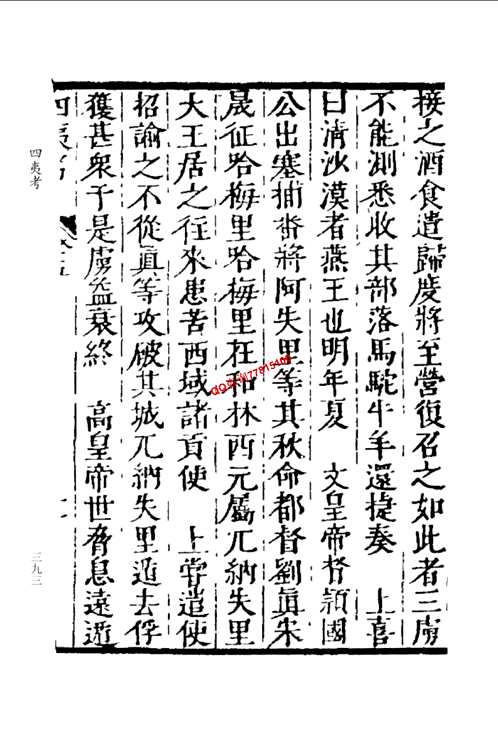 接之酒食遣歸度將至營復召之如此者三虜
不能測悉收其部落馬駝牛羊還捷奏　上喜
曰清沙漠者燕王也明年夏　文皇帝督潁國
公出塞捕番將阿失里等其秋命都督劉眞宋
晟征哈梅里哈梅里在和林西元屬兀納失里
大王居之往來患苦西域諸貢使　上嘗遣使
招諭之不從眞等攻破其城兀納失里遁去俘
獲甚衆于是虜益衰終　高皇帝世脅息遠遁
四夷考
四夷考
三九三